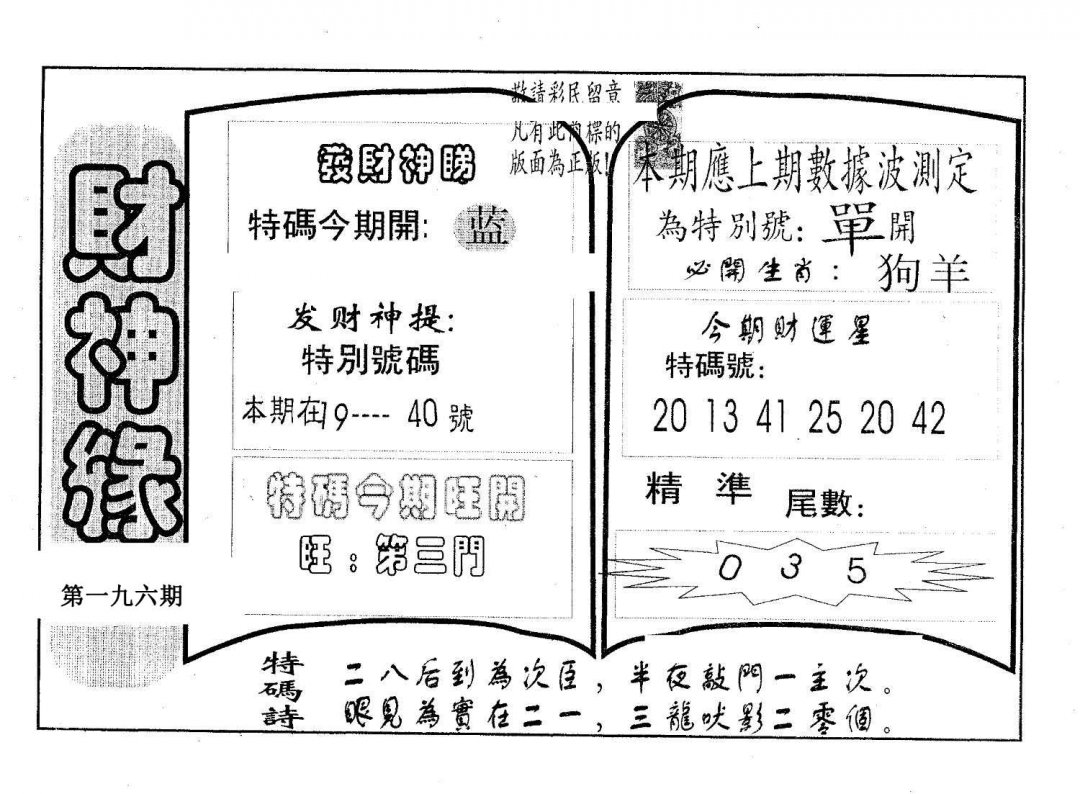 財神緣
第一九六期
敬請彩民留意
凡有此内標的
版面為正版!
發財神睇
特碼今期開: 蓝
发财神提:
特別號碼
本期在19---- 40號
特碼今期旺開
旺:第三門
本期應上期數據波測定
為特別號: 單開
必開生肖: 狗羊
今期財運星
特碼號:
20 13 41 25 20 42
精準 尾數:
0 3 5
特碼詩
二八后到為次臣,半夜敲門一主次。
眼見為實在二一,三龍吠影二零個。